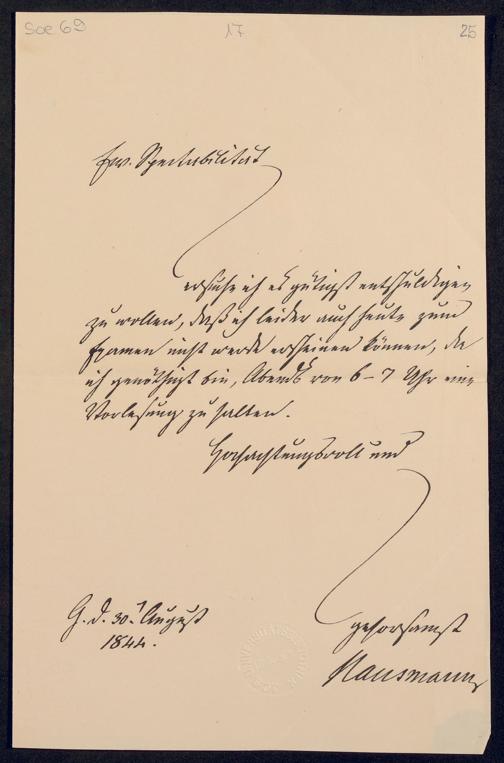 Soe 69 17 25
Ew. Spectabilität
ersuche ich es gütigst entschuldigen
zu wollen, daß ich leider auch heute zum
Examen nicht werde erscheinen können, da
ich genöthigt bin, Abends von 6-7 Uhr eine
Vorlesung zu halten.
Hochachtungsvoll und
gehorsamst
Hausmann
G. d. 30. August
1844.